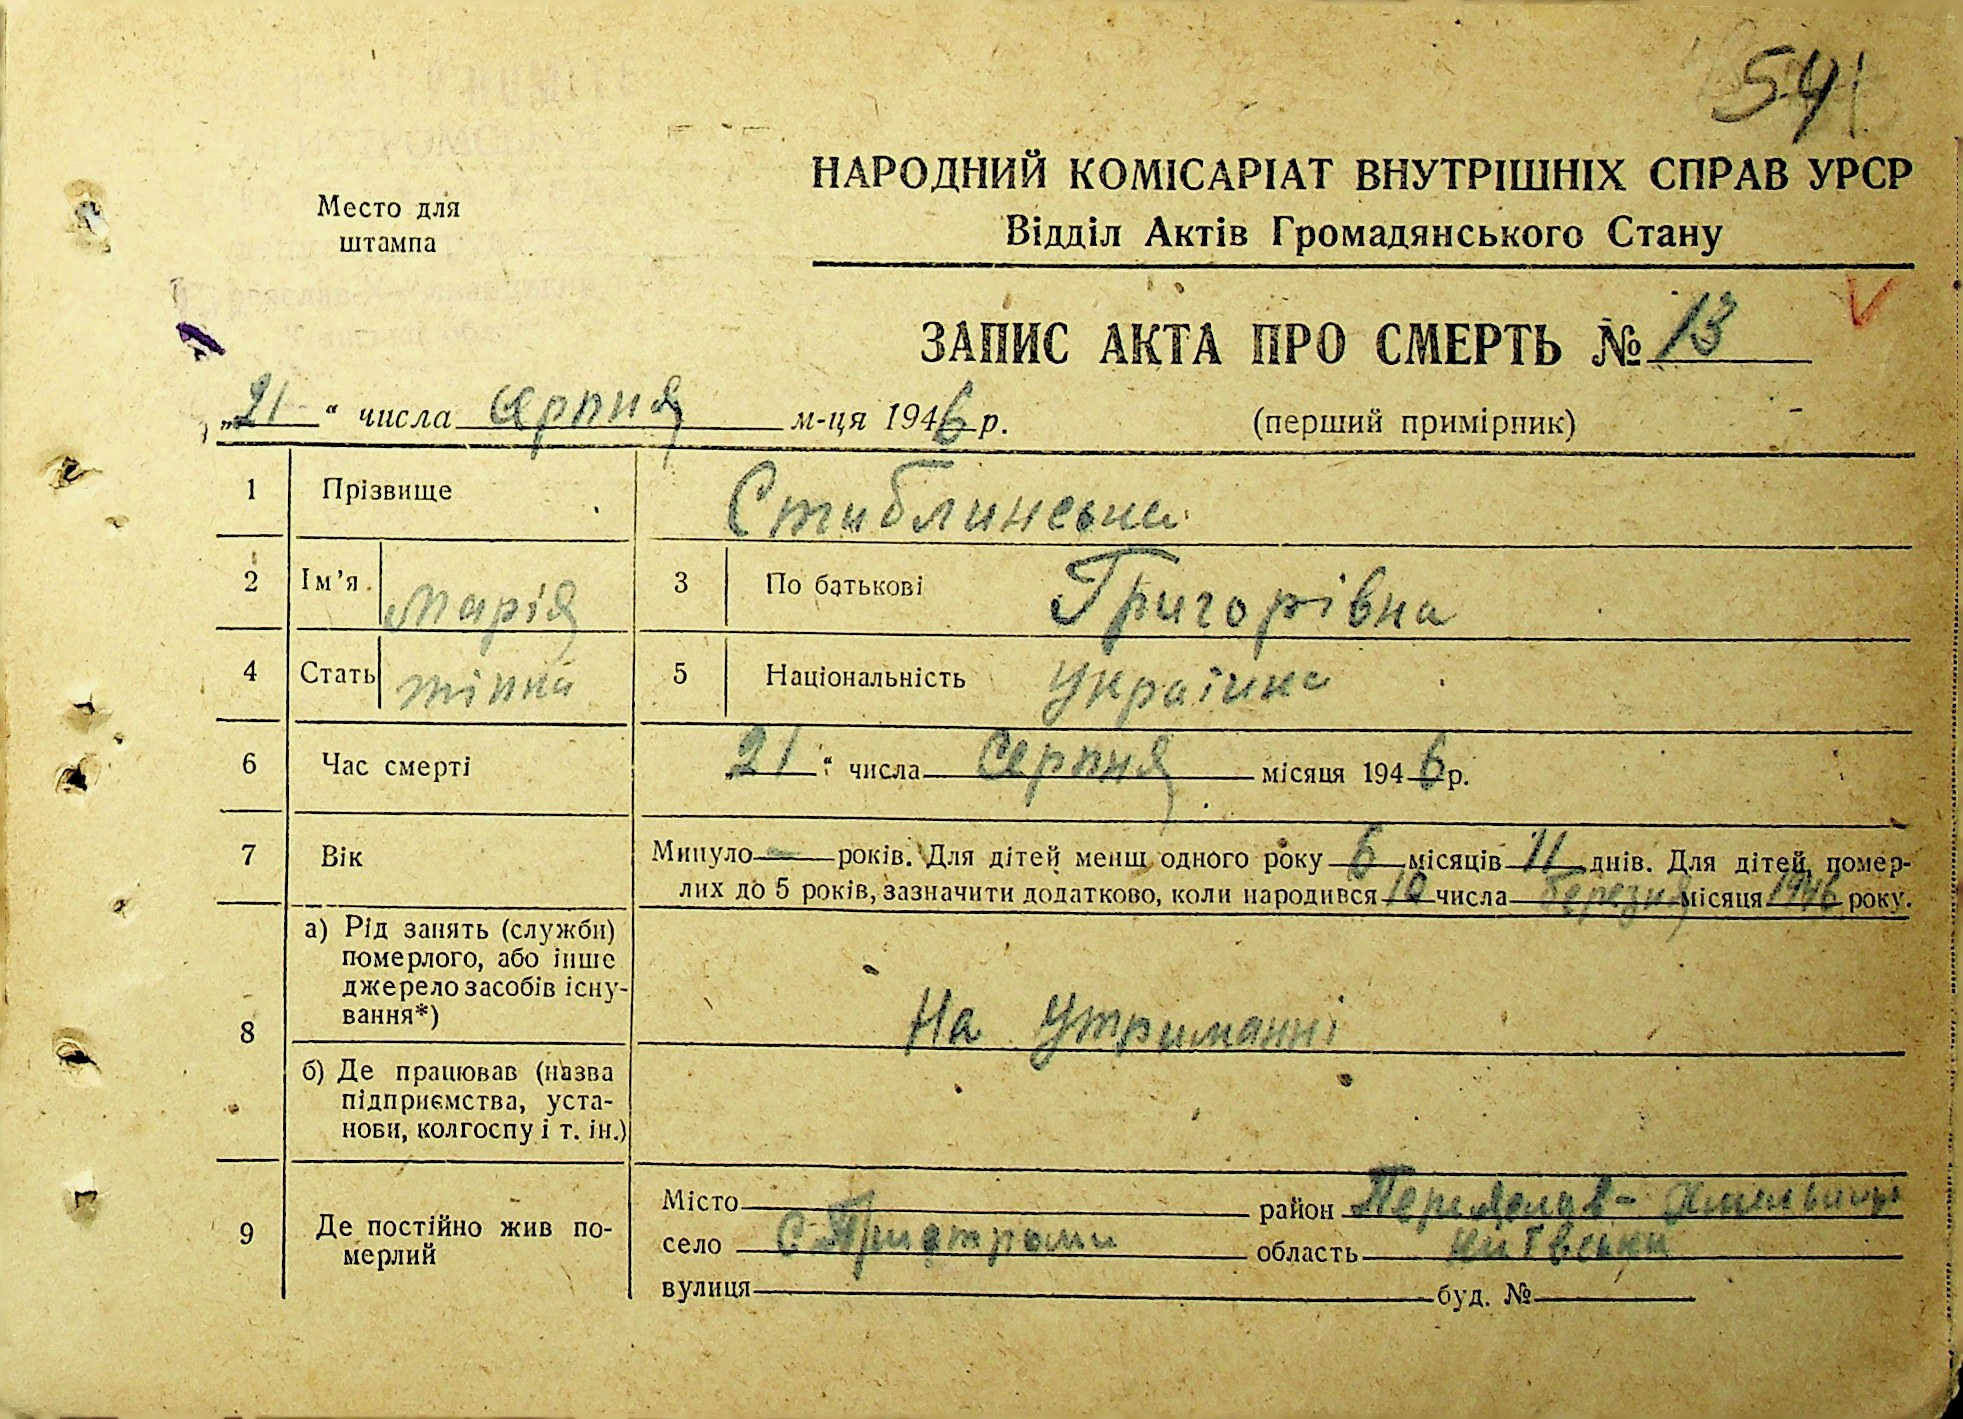 541
Место для
штампа
НАРОДНИЙ КОМІСАРІАТ ВНУТРІШНІХ СПРАВ УРСР
Відділ Актів Громадянського Стану
ЗАПИС АКТА ПРО СМЕРТЬ № 13
„21“ числа серпня м-ця 1946 р.
(перший примірник)
1 Прізвище Стиблинська
2 Ім'я Марія 3 По батькові Григорівна
4 Стать жіноча 5 Національність Українка
6 Час смерті „21“ числа Серпня місяця 1946 р.
7 Вік Минуло — років. Для дітей менш одного року 6 місяців 11 днів. Для дітей, помер-
лих до 5 років, зазначити додатково, коли народився 10 числа березня місяця 1946 року.
8 а) Рід занять (служби)
померлого, або інше
джерело засобів існу-
вання*)
На утриманні
б) Де працював (назва
підприємства, уста-
нови, колгоспу і т. ін.)
9 Де постійно жив по-
мерлий
Місто район Переяслав-Хмельниць
село с Пристроми область Київська
вулиця буд. №